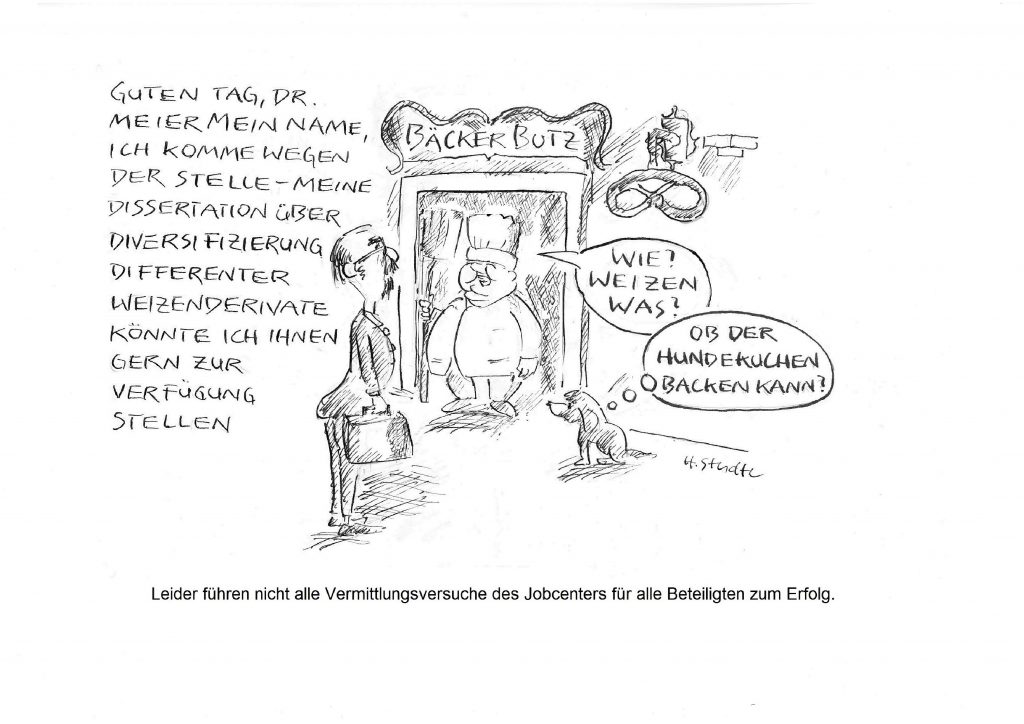 GUTEN TAG, DR.
MEIER MEIN NAME,
ICH KOMME WEGEN
DER STELLE – MEINE
DISSERTATION ÜBER
DIVERSIFIZIERUNG
DIFFERENTER
WEIZENDERIVATE
KÖNNTE ICH IHNEN
GERN ZUR
VERFÜGUNG
STELLEN
BÄCKER BUTZ
WIE?
WEIZEN
WAS?
OB DER
HUNDEKUCHEN
BACKEN KANN?
H. Studte
Leider führen nicht alle Vermittlungsversuche des Jobcenters für alle Beteiligten zum Erfolg.